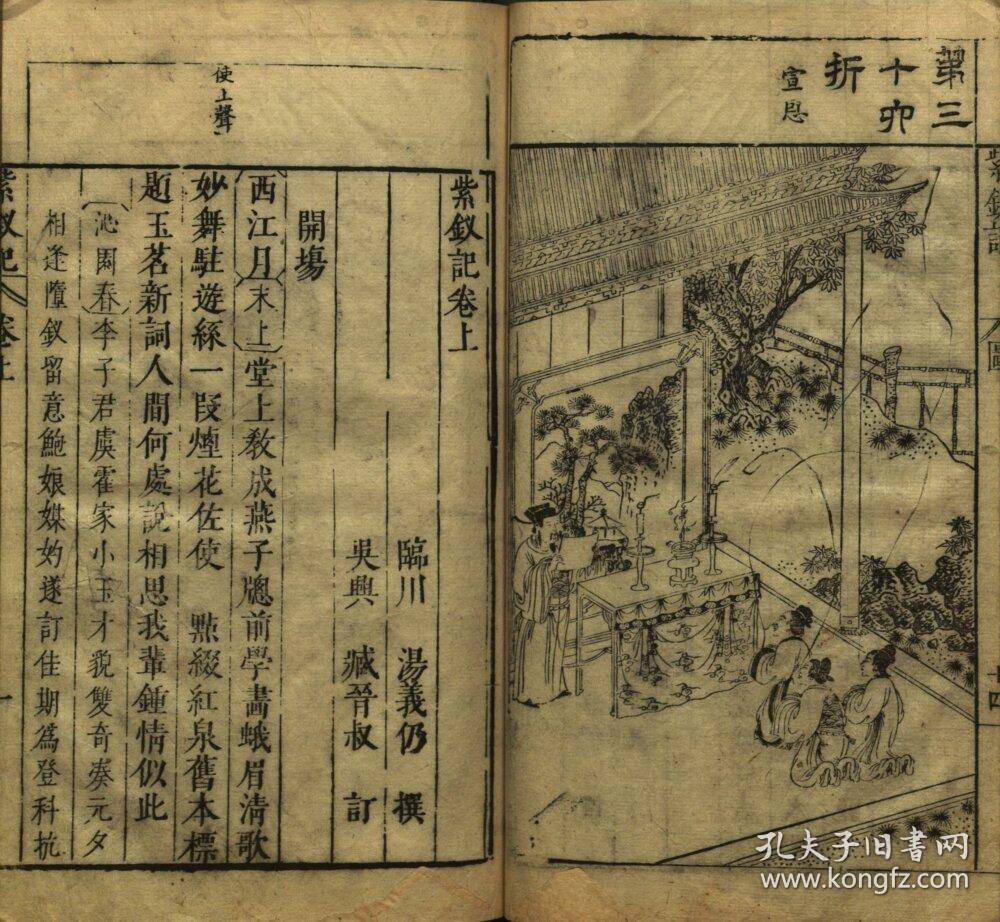 紫釵記 圖 十四
第三
十六
折
宣恩
使上聲
紫釵記卷上
臨川 湯義仍 撰
吳興 臧晉叔 訂
開場
〔西江月〕〔末上〕堂上敎成燕子牕前學畫蛾眉清歌
妙舞駐遊絲一段煙花佐使 點綴紅泉舊本標
題玉茗新詞人間何處說相思我輩鍾情似此
〔沁園春〕李子君虞霍家小玉才貌雙奇湊元夕
相逢墮釵留意鮑娘媒妁遂訂佳期爲登科抗
紫釵記 卷上 一
孔夫子旧书网
www.kongfz.com